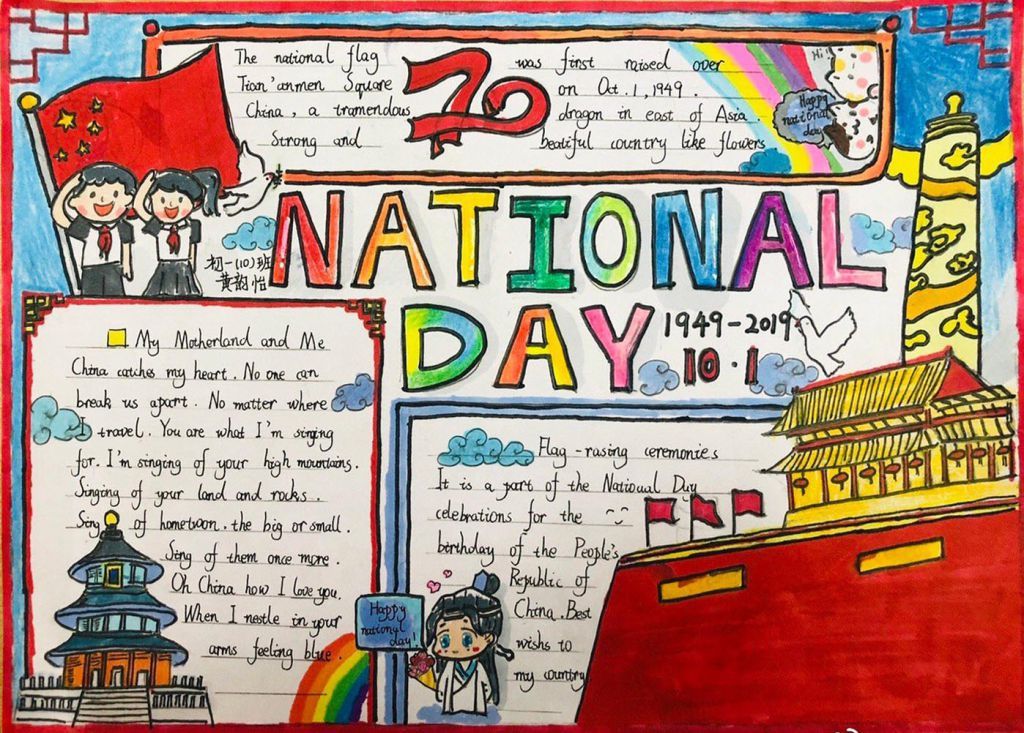 The national flag 70 was first raised over
Tian'anmen Square on Oct.1,1949.
China, a tramendous dragon in east of Asia.
Strong and beatiful country like flowers
Hi!
Happy
national
day
NATIONAL
DAY
初一(10)班
黄韵怡
1949-2019
10·1
My Motherland and Me
China catches my heart. No one can
break us apart. No matter where
I travel. You are what I'm singing
for. I'm singing of your high mountains.
Singing of your land and rocks.
Sing of hometwon, the big or small.
Sing of them once more.
Oh China how I love you.
When I nestle in your
arms feeling blue.
Flag-rasing ceremonies
It is a part of the National Day
celebrations for the
birthday of the People's
Republic of
China. Best
wishs to
my country
Happy
national
day!